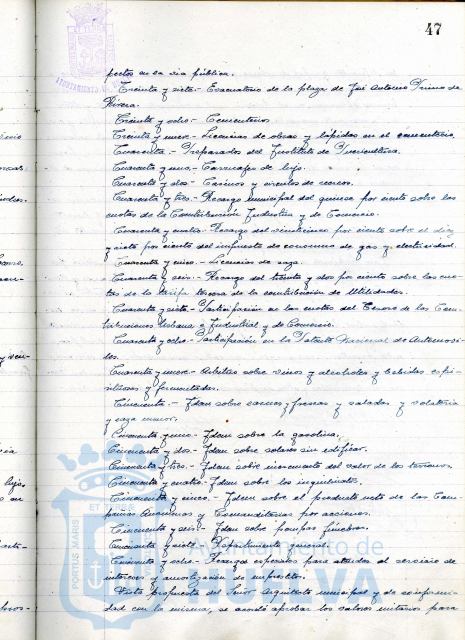 47
pectos en la via pública.
Treinta y siete.- Evacuatorio de la plaza de José Antonio Primo de
Rivera.
Treinta y ocho.- Cementerios.
Treinta y nueve.- Licencias de obras y lápidas en el cementerio.
Cuarenta.- Preparados del Instituto de Puericultura.
Cuarenta y una.- Carruajes de lujo.
Cuarenta y dos.- Casinos y circulos de recreo.
Cuarenta y tres.- Recargo municipal del quince por ciento sobre las
cuotas de la Contribución Industrial y de Comercio.
Cuarenta y cuatro.- Recargo del veinticinco por ciento sobre el diez
y siete por ciento del impuesto de consumo de gas y electricidad.
Cuarenta y cinco.- Licencias de caza.
Cuarenta y seis.- Recargo del treinta y dos por ciento sobre las cuo-
tas de la tarifa tercera de la contribución de Utilidades.
Cuarenta y siete.- Participación en las cuotas del Tesoro de las Con-
tribuciones Urbana e Industrial y de Comercio.
Cuarenta y ocho.- Participación en la Patente Nacional de Automovi-
les.
Cuarenta y nueve.- Arbitrio sobre vinos y alcoholes y bebidas espi-
rituosas y fermentadas.
Cincuenta.- Idem sobre carnes frescas y saladas y volatería
y caza menor.
Cincuenta y uno.- Idem sobre la gasolina.
Cincuenta y dos.- Idem sobre solares sin edificar.
Cincuenta y tres.- Idem sobre incremento del valor de los terrenos.
Cincuenta y cuatro.- Idem sobre los inquilinatos.
Cincuenta y cinco.- Idem sobre el producto neto de las Com-
pañias Anonimas y Comanditarias por acciones.
Cincuenta y seis.- Idem sobre pompas fúnebres.
Cincuenta y siete.- Repartimiento general.
Cincuenta y ocho.- Recargos especiales para atender el servicio de
intereses y amortización de empréstitos.
Vista propuesta del Señor Arquitecto municipal y de conformi-
dad con la misma, se acordó aprobar los valores unitarios para
Ayuntamiento de
HUELVA
PORTUS MARIS